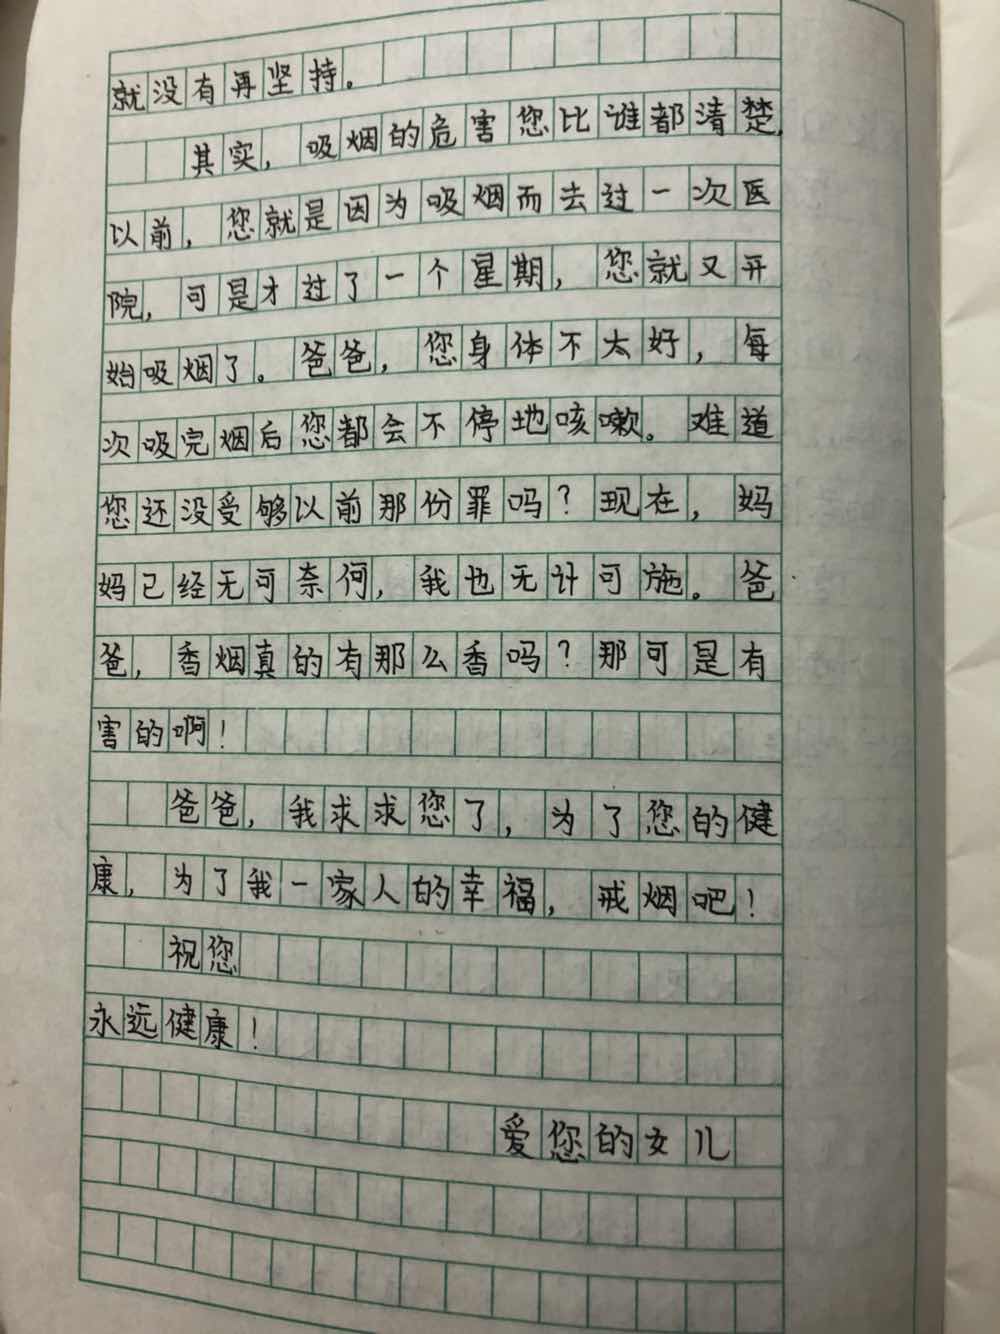 就没有再坚持。
其实，吸烟的危害您比谁都清楚，
以前，您就是因为吸烟而去过一次医
院，可是才过了一个星期，您就又开
始吸烟了。爸爸，您身体不太好，每
次吸完烟后您都会不停地咳嗽。难道
您还没受够以前那份罪吗？现在，妈
妈已经无可奈何，我也无计可施。爸
爸，香烟真的有那么香吗？那可是有
害的啊！
爸爸，我求求您了，为了您的健
康，为了我一家人的幸福，戒烟吧！
祝您
永远健康！
爱您的女儿